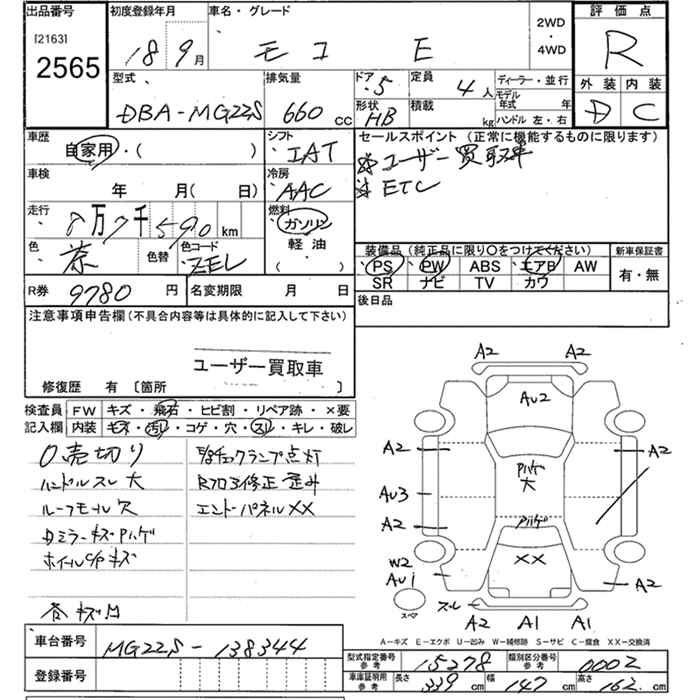 出品番号 初度登録年月 車名・グレード 2WD・4WD 評価点
[2163] 2565 18 9月 モコ E R
外装 内装
D C
型式 排気量 ドア 5 定員 4人 ディーラー・並行
DBA-MG22S 660 CC 形状 HB 積載 kg モデル年式 年
ハンドル 左・右
車歴 シフト セールスポイント (正常に機能するものに限ります)
自家用・( ) IAT ☆ユーザー買取車
車検 冷房 ☆ETC
年 月( 日) AAC
走行 燃料
8万7千590km ガソリン
色 茶 色替 色コード ZEL 軽油 ( )
装備品 (純正品に限り○をつけてください) 新車保証書
PS PW ABS エアB AW 有・無
SR ナビ TV カワ
R券 9780円 名変期限 月 日 後日品
注意事項申告欄 (不具合内容等は具体的に記入して下さい)
ユーザー買取車
修復歴 有 [箇所 ]
検査員 FW キズ・飛石・ヒビ割・リペア跡・×要
記入欄 内装 モネ・汚レ・コゲ・穴・スレ・キレ・破レ
売切り
ハンドルスレ大
ルーフモール欠
ミラーキズ ハゲ
ホイールC/Pキズ
各キズ凹
チェックランプ点灯
修正 歪み
エンドパネルXX
A2 A2
Au2
A2 A2
ハゲ大
Au3
A2
ハゲ
W2 XX
Au1 A2
スレ
スペア
A2 A1 A1
A－キズ E－エクボ U－凹み W－補修跡 S－サビ C－腐食 XX－交換済
車台番号 MG22S-138344
登録番号
型式指定番号 参考 15278 類別区分番号 参考 0002
車庫証明用 参考 長さ 339cm 幅 147cm 高さ 162cm